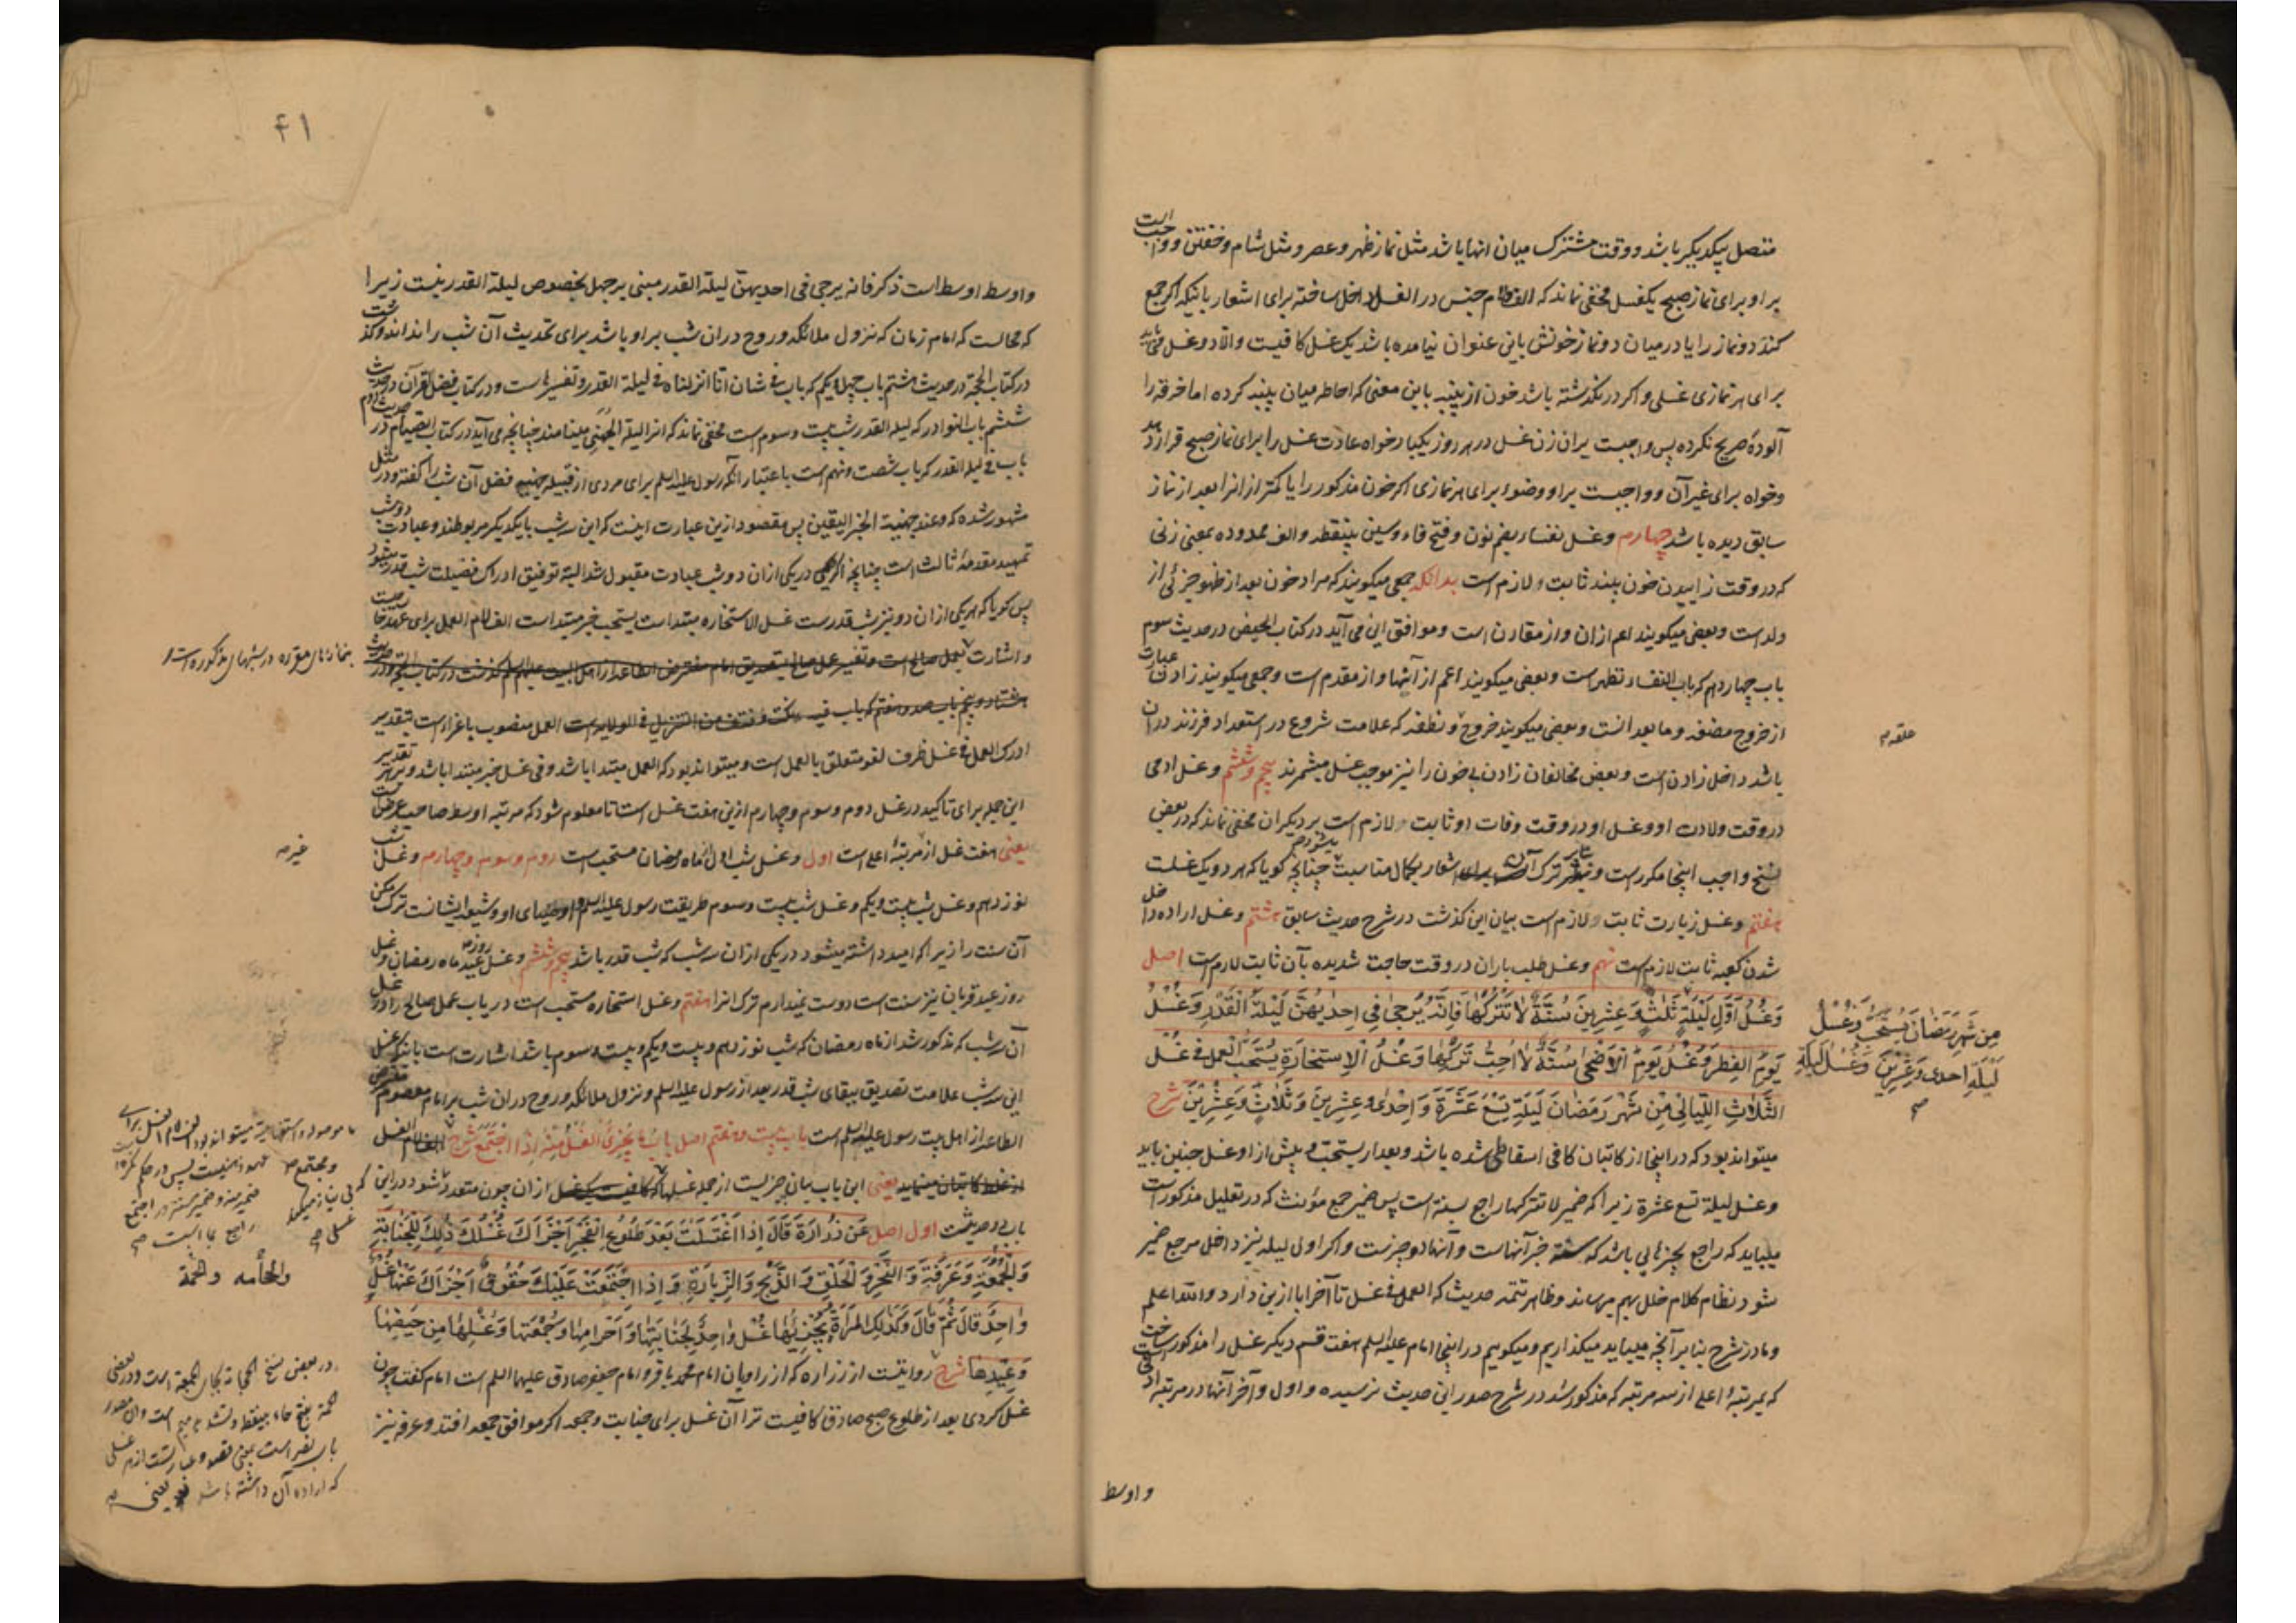 متصل بیکدیگر باشد و وقت مشترک میان انها باشد مثل نماز ظهر و عصر و مثل شام و خفتن و واجبست
بر او برای نماز صبح یکغسل مخفی نماند که الف لام جنس در الغسل داخل ساخته برای اشعار باینکه اکر جمع
کند دو نماز را یا درمیان دو نماز خونش باین عنوان نیامده باشد یک غسل کافیست و الا دو غسل
برای هر نمازی غسلی و اکر درنکذشته باشد خون از پنبه باین معنی که احاطه میان پنبه کرده اما خرقه را
آلوده صریح نکرده پس واجبست بران زن غسل در هر روز یکبار خواه عادت غسل را برای نماز صبح قرار دهد
وخواه برای غیر آن و واجبست بر او وضوء برای هر نمازی اکر خون مذکور را یا کمتر از انرا بعد از نماز
سابق دیده باشد چهارم وغسل نفساء بضم نون و فتح فاء و سین بینقطه و الف ممدوده بمعنی زنی
که در وقت زاییدن خون بیند ثابت و لازم است بدانکه جمعی میکویند که مراد خون بعد از ظهور جزئی از
ولد است و بعضی میکویند اعم ازان و از مقارن است و موافق این می آید در کتاب الحیض در حدیث سوم
باب چهاردهم که باب النفساء تطهر است و بعضی میکویند اعم از آنها و از مقدم است و جمعی میکویند زادن عبارت
از خروج مضغه و ما بعد انست و بعضی میکویند خروج و نطفه که علامت شروع در استعداد فرزند دران
علقه
باشد داخل زادن است و بعض مخالفان زادن بی خون را نیز موجب غسل میشمرند پنجم و ششم وغسل ادمی
در وقت ولادت او و غسل او در وقت وفات او ثابت و لازم است بر دیکران مخفی نماند که در بعض
نسخ واجب اینجا مکرر است و ترک برای اشعار بکمال مناسبت چنانچه کویا که هر دو یک غسلست
هفتم وغسل زیارت ثابت و لازم است بیان این کذشت در شرح حدیث سابق هشتم وغسل اراده داخل
شدن کعبه ثابت لازم است نهم وغسل طلب باران در وقت حاجت شدیده بآن ثابت لازم است اصل
وَغُسْلُ اَوَّلِ لَيْلَةٍ ثَلٰثٍ وَعِشْرِينَ سُنَّةٌ لاٰ تَتْرُكْهٰا فَاِنَّهُ يُرْجىٰ فِي اِحْدٰيهُنَّ لَيْلَةُ الْقَدْرِ وَغُسْلُ
مِن شَهْرِ رَمَضٰانَ يُسْتَحَبُّ وَغُسْلُ
لَيْلَةِ اِحدى وَعِشْرِينَ وَغُسْلُ لَيْلَةِ
يَوْمِ الفِطْرِ وَغُسْلُ يَوْمِ الْاَضْحىٰ سُنَّةٌ لاٰ اُحِبُّ تَرْكَهٰا وَغُسْلُ الْاِسْتِخٰارَةِ يُسْتَحَبُّ الْعَمَلُ فِي غُسْلِ
الثَّلاٰثِ اللَّيٰالِي مِنْ شَهْرِ رَمَضٰانَ لَيْلَةِ تِسْعَ عَشْرَةَ وَاِحْدٰى وعِشْرِينَ وَثَلٰاثٍ وَعِشْرِينَ شرح
میتواند بود که در اینجا از کاتبان کافی اسقاطی شده باشد و بعد از یستحب و پیش از او غسل چنین باید
وغسل لیلة تسع عشرة زیرا که ضمیر لا تترکها راجع بسنة است پس ضمیر جمع مؤنث که در تعلیل مذکور است
میباید که راجع بچیزهایی باشد که سنة خبر آنهاست و آنها دو چیزست و اکر اولی لیله نیز داخل مرجع ضمیر
شود نظام کلام خلل بهم میرساند و ظاهر تتمه حدیث که العمل فی غسل تا آخر ابا ازین دارد و الله اعلم
و ما در شرح بنابر آنچه میباید میکذاریم و میکوییم در اینجا امام علیه السلم هفت قسم دیکر غسل را مذکور ساخته
که بمرتبهٔ اعلی از سه مرتبه که مذکور شد در شرح صدر این حدیث نرسیده و اول و آخر آنها در مرتبه ادنی است
و اوسط
۴۱
و اوسط اوسط است ذکر فانه یرجی فی احدیهن لیلة القدر مبنی بر جهل بخصوص لیلة القدر نیست زیرا
که محالست که امام زمان که نزول ملائکه و روح دران شب بر او باشد برای تحدیث آن شب را نداند و کذشت
در کتاب الحجة در حدیث هشتم باب چهل و یکم که باب فی شان انا انزلناه فی لیلة القدر و تفسیرها ست و در کتاب فضل القرآن در حدیث
ششم باب النوادر که لیله القدر شب بیست و سوم است مخفی نماند که انرا لیلة الجهنی مینامند چنانچه می آید در کتاب الصیام در
باب فی لیلة القدر که باب شصت و نهم است باعتبار آنکه رسول علیه السلم برای مردی از قبیله جهینه فضل آن شب را کفته و در مثل
مشهور شده که وعند جهینة الخبر الیقین پس مقصود ازین عبارت اینست که این سه شب با یکدیکر مربوطند و عبادت دو شب
تمهید مقدمهٔ ثالث است چنانچه اکر در یکی ازان دو شب عبادت مقبول شد البته توفیق ادراک فضیلت شب قدر میشود
پس کویا که هر یکی ازان دو نیز شب قدرست غسل الاستخاره مبتداست یستحب خبر مبتداست الف لام العمل برای عهد
و اشارت بعمل صالح است
بنمازهای مقرره در شبهای مذکوره است
العمل منصوب باغراء است بتقدیر
ادرک العمل فی غسل ظرف لغو متعلق بالعمل است و میتواند بود که العمل مبتدا باشد و فی غسل خبر مبتدا باشد و بر هر تقدیر
این جمله برای تاکید در غسل دوم و سوم و چهارم ازین هفت غسل است تا معلوم شود که مرتبه اوسط صاحب عرض است
یعنی هفت غسل از مرتبهٔ اعلی است اول وغسل شب اول ماه رمضان مستحب است دوم و سوم و چهارم وغسل شب
غیر
نوزدهم وغسل شب بیست و یکم وغسل شب بیست و سوم طریقت رسول علیه السلم و اوصیای او و شیعه ایشانست ترک مکن
آن سنت را زیرا که امید داشته میشود در یکی ازان سه شب که شب قدر باشد پنجم و ششم وغسل روز عید ماه رمضان وغسل
روز عید قربان نیز سنت است دوست نمیدارم ترک انرا هفتم وغسل استخاره مستحب است در یاب عمل صالح را در غسل
آن سه شب که مذکور شد از ماه رمضان که شب نوزدهم و بیست و یکم و بیست و سوم باشد اشارت است باینکه غسل
این سه شب علامت تصدیق ببقای شب قدر بعد از رسول علیه السلم و نزول ملائکه و روح دران شب بر امام معصوم مفترض
الطاعه از اهل بیت رسول علیهم السلم است باب بیست و هفتم اصل بَابُ مَا يُجْزِئُ الْغُسْلُ مِنْهُ اِذَا اجْتَمَعَ شرح الف لام الغسل
یعنی این باب بیان چیزیست از جمله غسلها که ازان چون متعدد شود در این
باب دو حدیثست اول اصل عَن زُرٰارَةَ قٰالَ اِذَا اغْتَسَلْتَ بَعْدَ طُلُوعِ الْفَجْرِ اَجْزَأَكَ غُسْلُكَ ذٰلِكَ لِلْجَنٰابَةِ
وَالْجُمُعَةِ وَعَرَفَةَ وَالنَّحْرِ وَالْحَلْقِ وَالذَّبْحِ وَالزِّيٰارَةِ وَاِذَا اجْتَمَعَتْ عَلَيْكَ حُقُوقٌ اَجْزَأَكَ عَنْهٰا غُسْلٌ
والحجامه والجمة
وٰاحِدٌ قٰالَ ثُمَّ قٰالَ وَكَذٰلِكَ الْمَرْأَةُ يُجْزِئُهٰا غُسْلٌ وٰاحِدٌ لِجَنٰابَتِهٰا وَاِحْرٰامِهٰا وَجُمُعَتِهٰا وَغُسْلِهٰا مِن حَيْضِهٰا
وَعِيدِهٰا شرح روایتست از زراره که از راویان امام محمد باقر و امام جعفر صادق علیهما السلم است امام کفت چون
غسل کردی بعد از طلوع صبح صادق کافیست ترا آن غسل برای جنابت و جمعه اکر موافق جمعه افتد و عرفه نیز
در بعض نسخ الحجامة بجای الجمعة است و در بعضی
که اراده آن داشته باشد یعنی